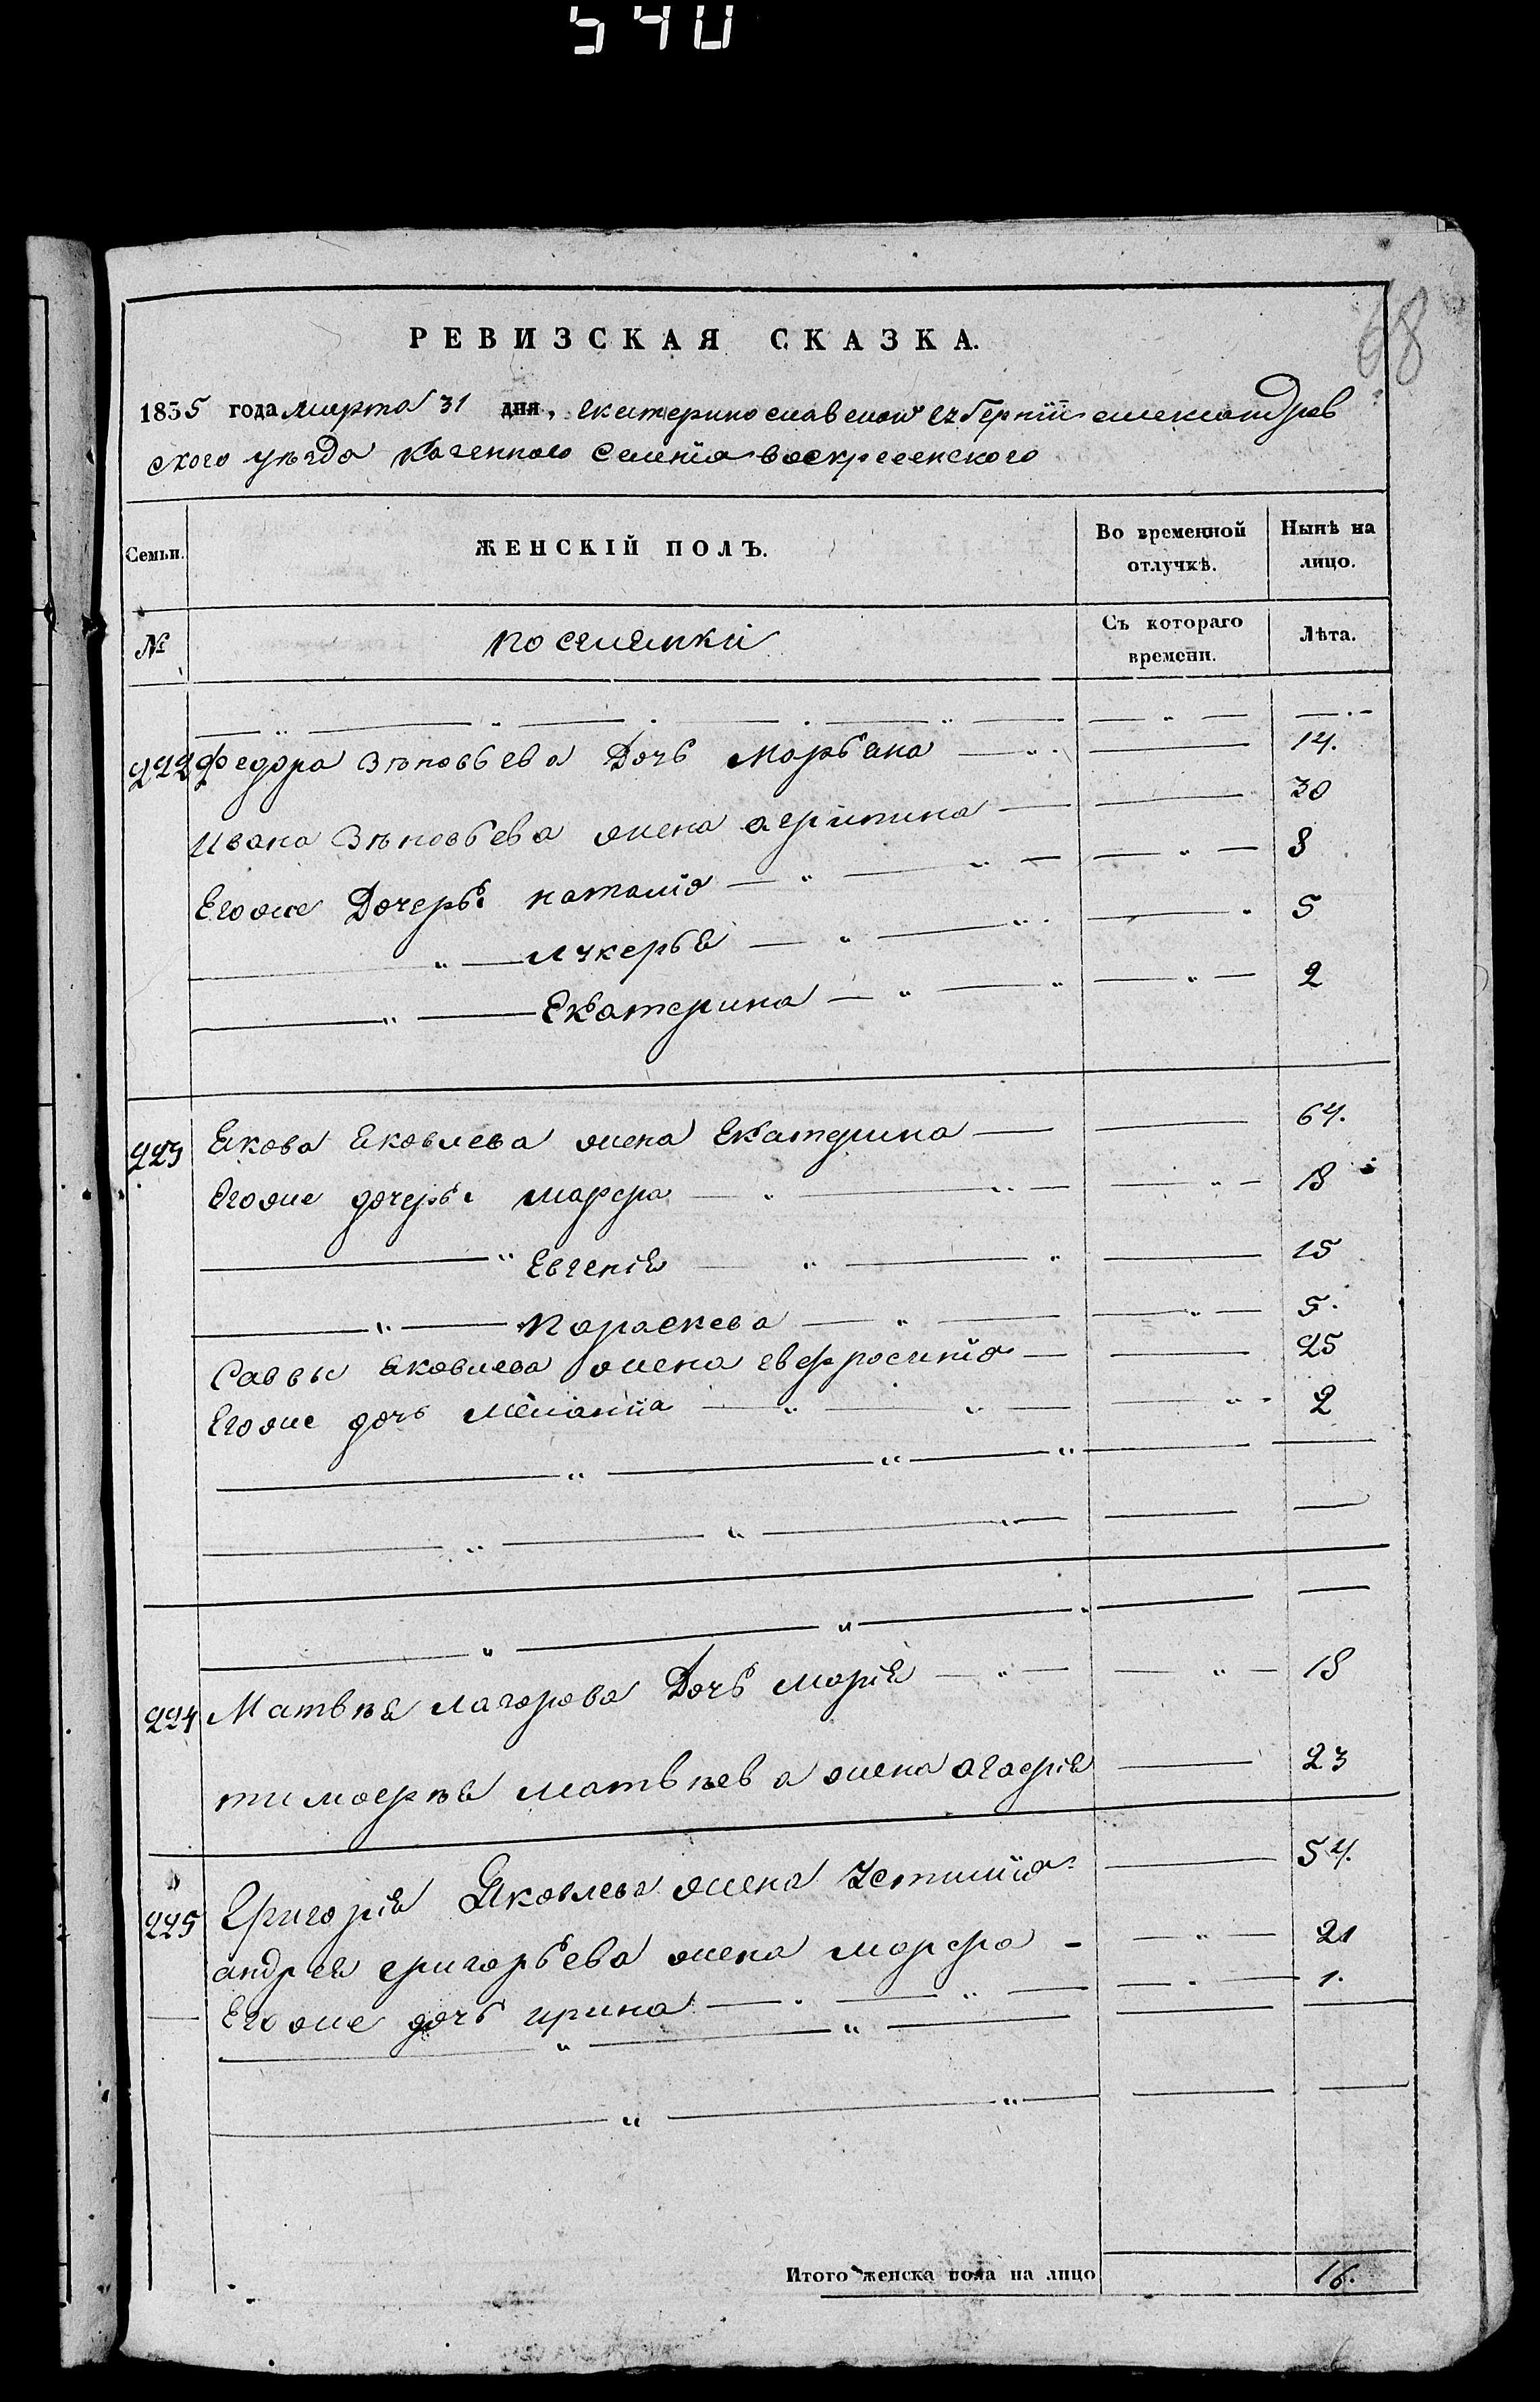 540
68
РЕВИЗСКАЯ СКАЗКА.
1835 года марта 31 дня, екатеринославской губернии александров
ского уѣзда казенного селения воскресенского
Семьи. ЖЕНСКІЙ ПОЛЪ. Во временной отлучкѣ. Нынѣ на лицо.
№ поселянки Съ котораго времени. Лѣта.
222 Федора Зѣновьева Дочь Марьяна 14.
Ивана Зѣновьева жена агрипина 30
Егоже Дочерьи наталия 8
лукерья 5
Екатерина 2
223 Якова Яковлева жена Екатерина 64.
Егоже дочерьи марфа 18
Евгения 15
Параскева 5.
Саввы Яковлева жена евфросиния 25
Егоже дочь мелания 2
224 Матвѣя лазарева Дочь мария 18
тимофѣя матвѣева жена агафия 23
225 Григория Яковлева жена Устиния 54.
андрея григорьева жена марфа 21
Егоже дочь ирина 1.
Итого женска пола на лицо 16.